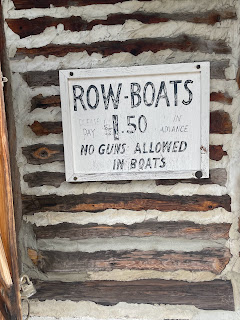 ROW-BOATS
DAY $1.50 IN ADVANCE
NO GUNS ALLOWED
IN BOATS